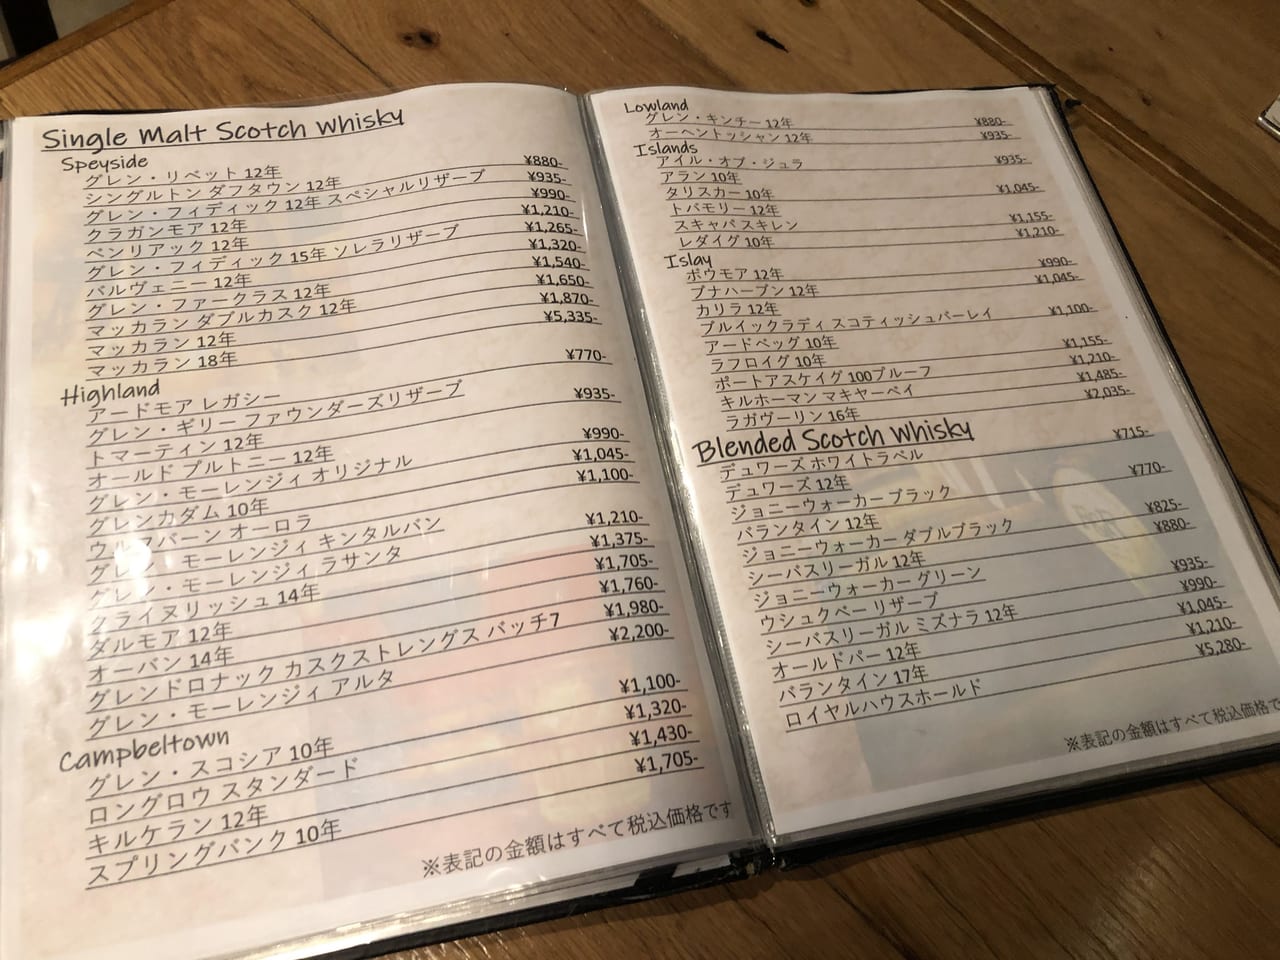 Single Malt Scotch Whisky
Speyside
グレン・リベット 12年
シングルトン ダフタウン 12年 ¥880-
グレン・フィディック 12年 スペシャルリザーブ ¥935-
クラガンモア 12年 ¥990-
ベンリアック 12年 ¥1,210-
グレン・フィディック 15年 ソレラリザーブ ¥1,265-
バルヴェニー 12年 ¥1,320-
グレン・ファークラス 12年 ¥1,540-
マッカラン ダブルカスク 12年 ¥1,650-
マッカラン 12年 ¥1,870-
マッカラン 18年 ¥5,335-
Highland
アードモア レガシー ¥770-
グレン・ギリー ファウンダーズリザーブ
トマーティン 12年 ¥935-
オールド プルトニー 12年
グレン・モーレンジィ オリジナル ¥990-
グレンカダム 10年 ¥1,045-
ウルフバーン オーロラ ¥1,100-
グレン・モーレンジィ キンタルバン
グレン・モーレンジィ ラサンタ ¥1,210-
クライヌリッシュ 14年 ¥1,375-
ダルモア 12年 ¥1,705-
オーバン 14年 ¥1,760-
グレンドロナック カスクストレングス バッチ7 ¥1,980-
グレン・モーレンジィ アルタ ¥2,200-
Campbeltown
グレン・スコシア 10年 ¥1,100-
ロングロウ スタンダード ¥1,320-
キルケラン 12年 ¥1,430-
スプリングバンク 10年 ¥1,705-
※表記の金額はすべて税込価格です
Lowland
グレン・キンチー 12年 ¥880-
オーヘントッシャン 12年 ¥935-
Islands
アイル・オブ・ジュラ ¥935-
アラン 10年
タリスカー 10年 ¥1,045-
トバモリー 12年
スキャパ スキレン ¥1,155-
レダイグ 10年 ¥1,210-
Islay
ボウモア 12年 ¥990-
ブナハーブン 12年 ¥1,045-
カリラ 12年
ブルイックラディ スコティッシュバーレイ ¥1,100-
アードベッグ 10年
ラフロイグ 10年 ¥1,155-
ポートアスケイグ 100プルーフ ¥1,210-
キルホーマン マキヤーベイ ¥1,485-
ラガヴーリン 16年 ¥2,035-
Blended Scotch Whisky
デュワーズ ホワイトラベル ¥715-
デュワーズ 12年
ジョニーウォーカー ブラック ¥770-
バランタイン 12年
ジョニーウォーカー ダブルブラック ¥825-
シーバスリーガル 12年 ¥880-
ジョニーウォーカー グリーン
ウシュクベー リザーブ ¥935-
シーバスリーガル ミズナラ 12年 ¥990-
オールドパー 12年 ¥1,045-
バランタイン 17年 ¥1,210-
ロイヤルハウスホールド ¥5,280-
※表記の金額はすべて税込価格で